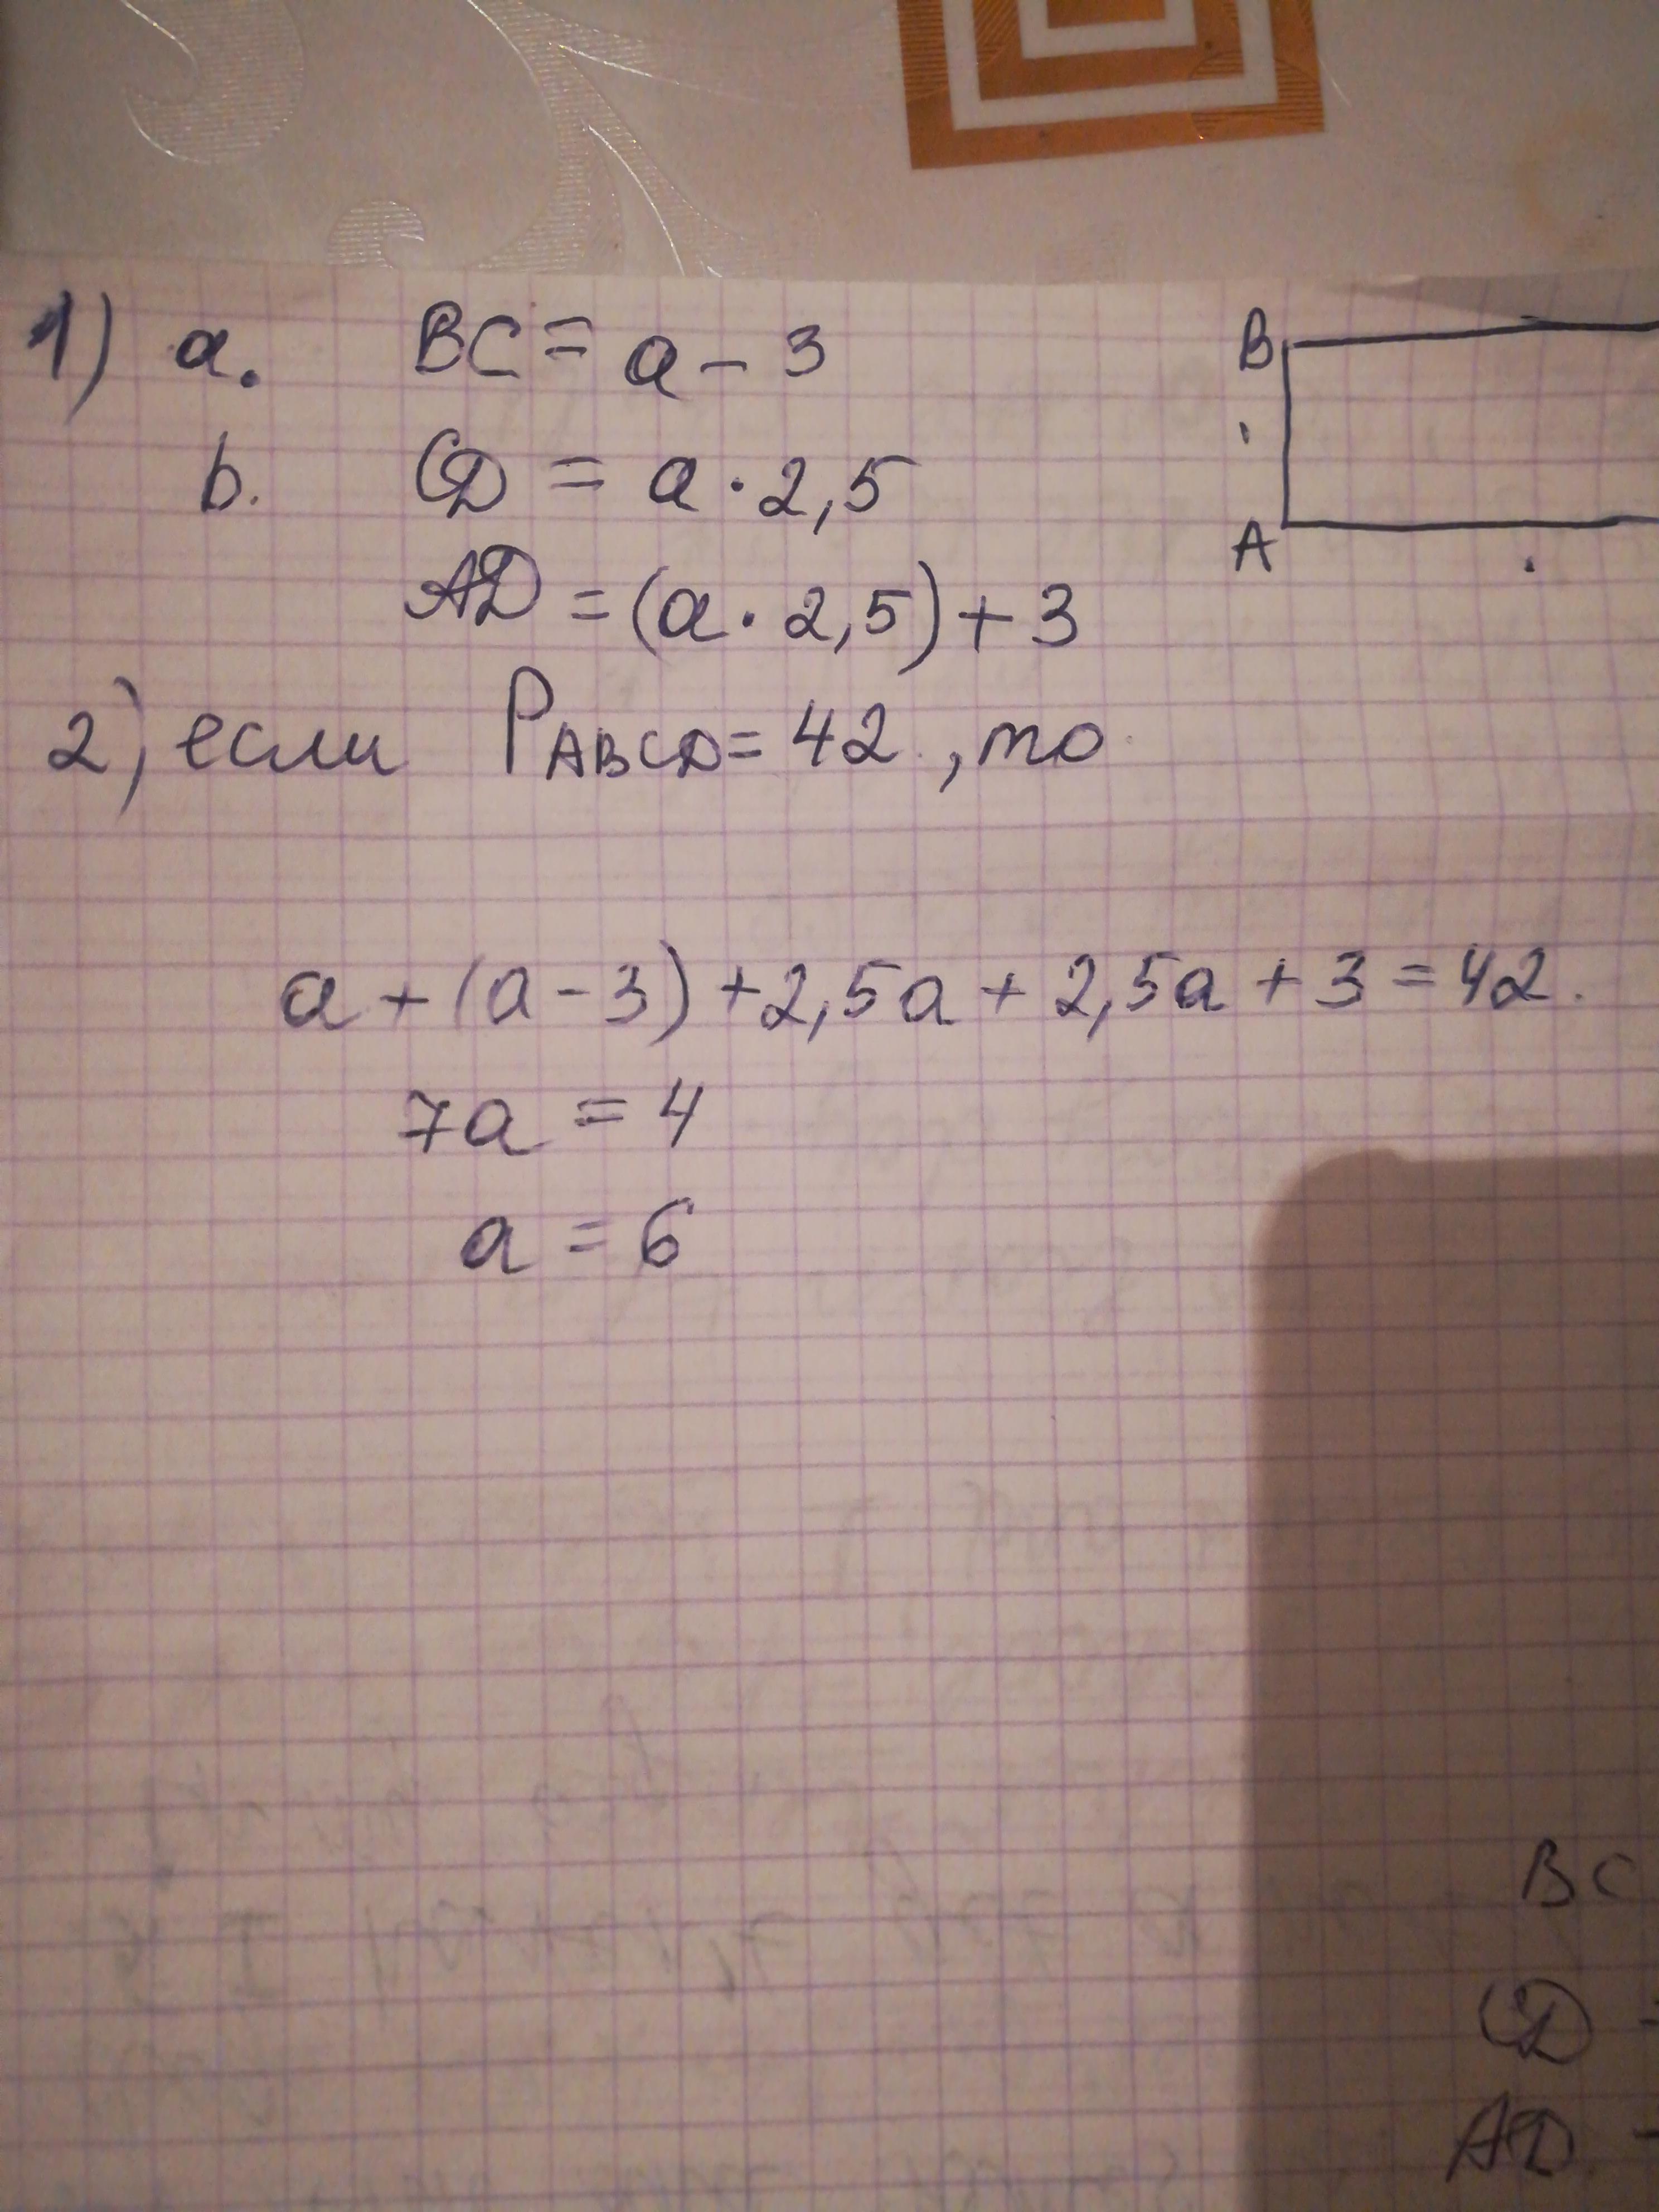 1) a. BC = a - 3
B
b. CD = a · 2,5
A
AD = (a · 2,5) + 3
2) если PABCD = 42, то
a + (a - 3) + 2,5a + 2,5a + 3 = 42.
7a = 4
a = 6
BC
CD -
AD -